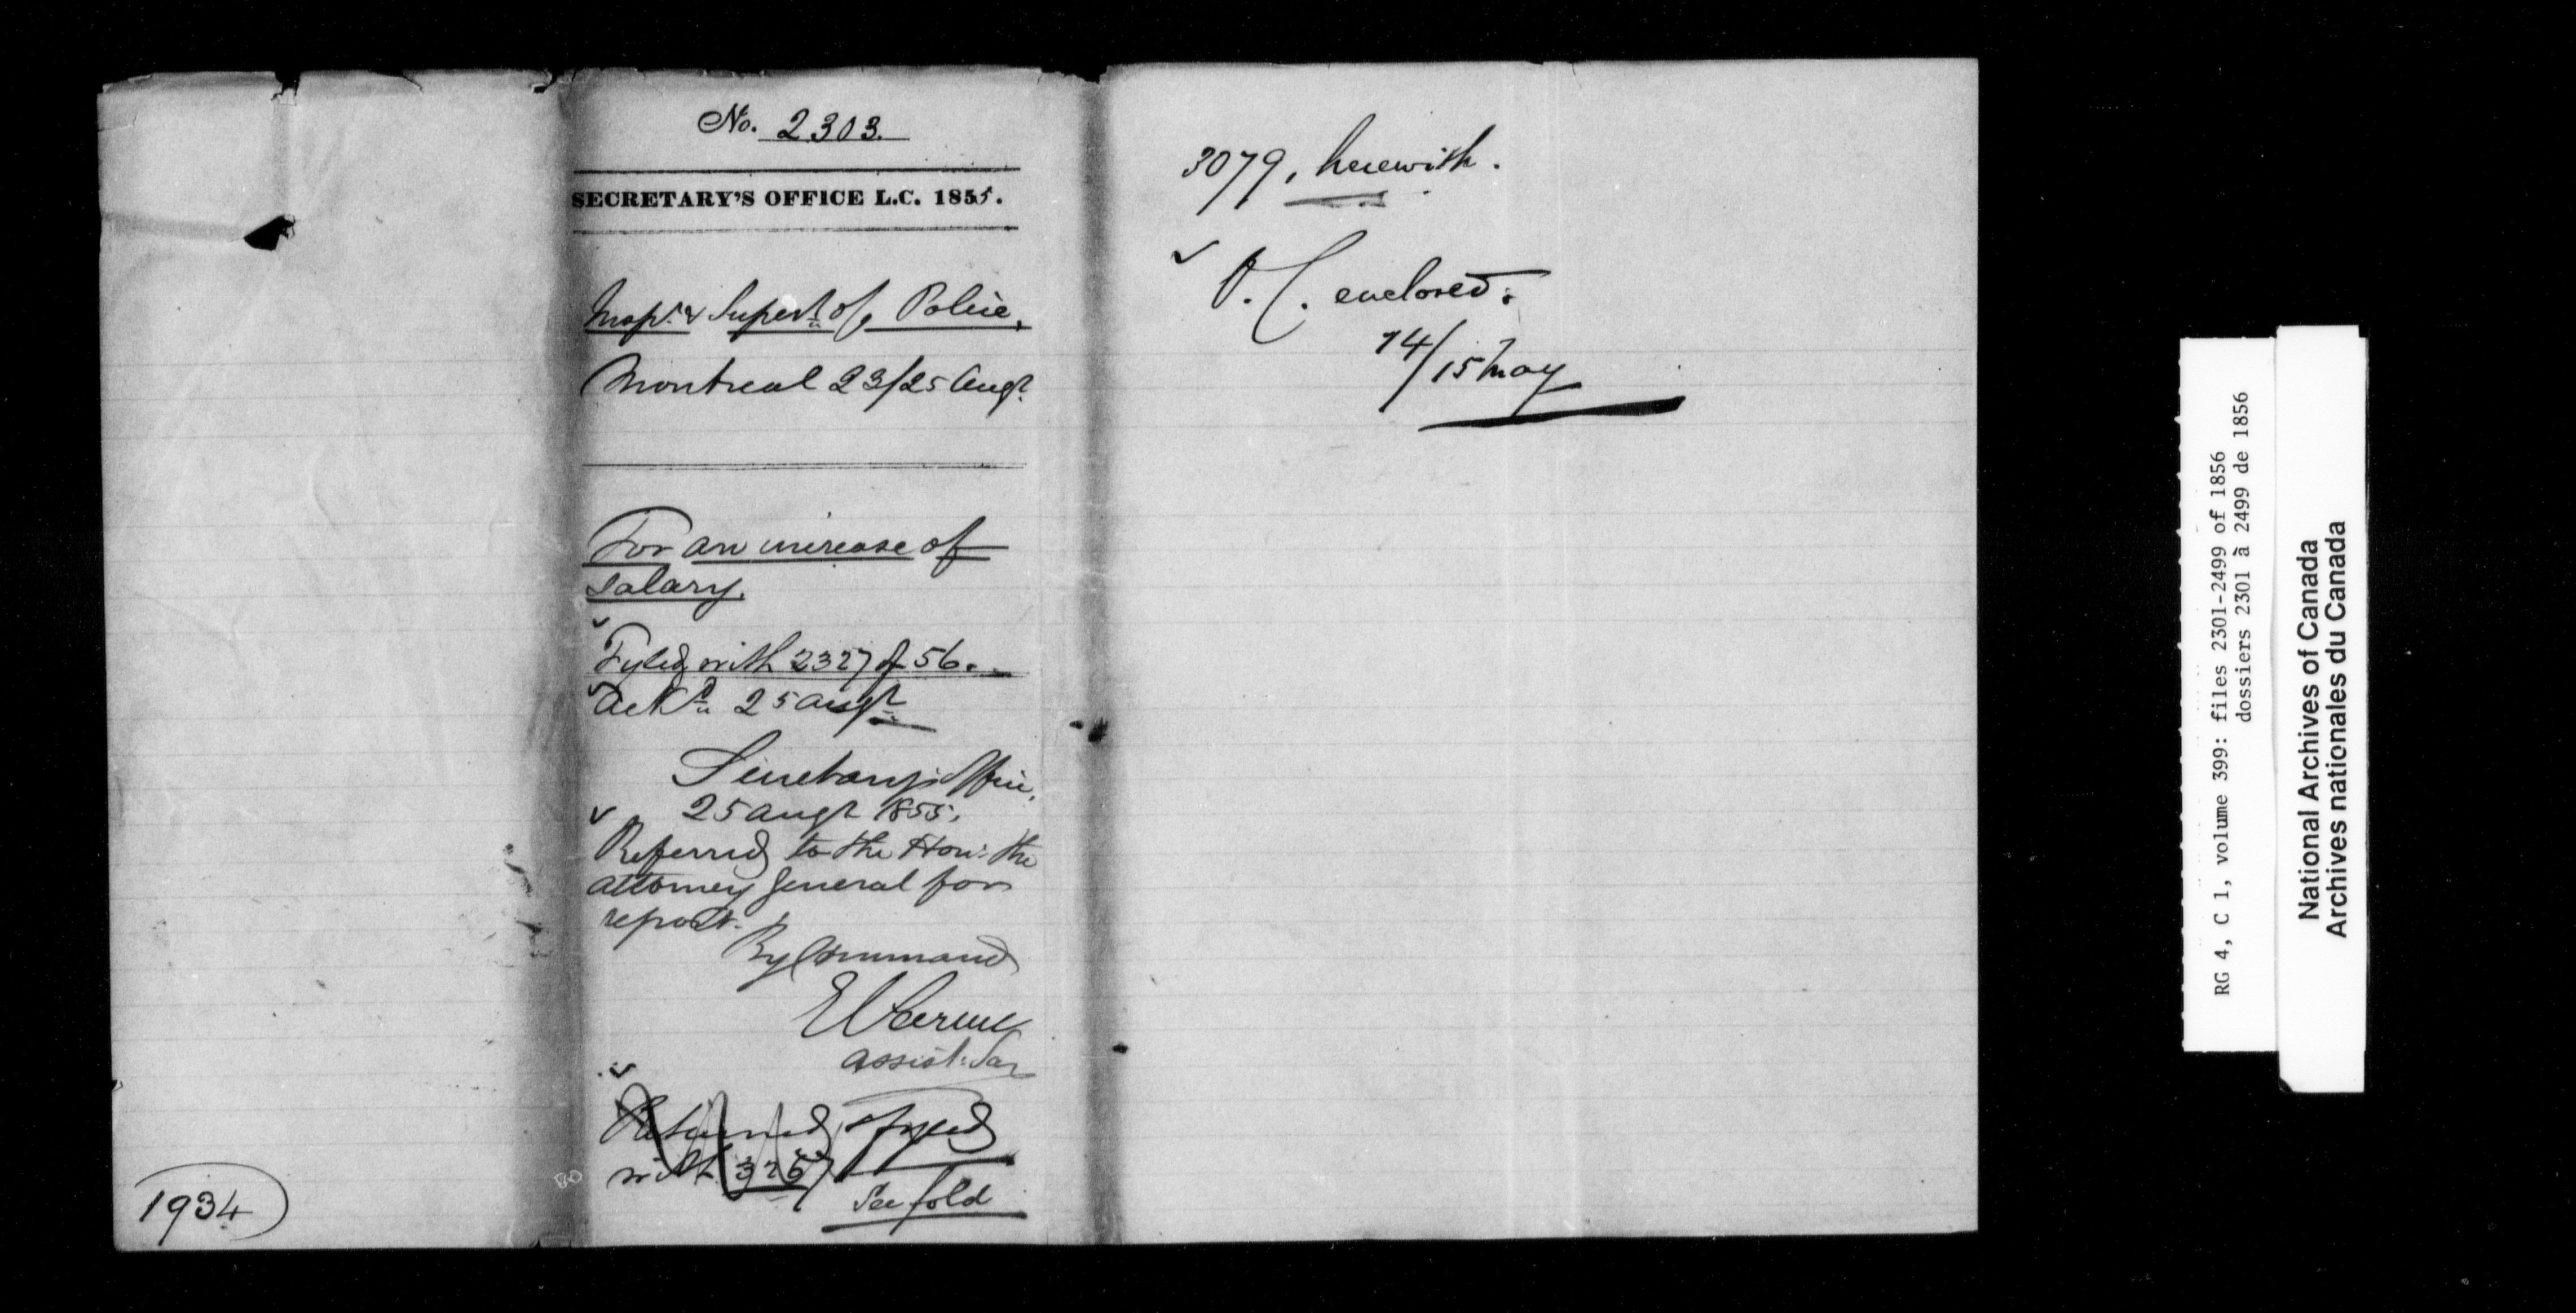 No. 2303.
SECRETARY'S OFFICE L.C. 1855.
Insp.r & Supert of Police,
Montreal 23/25 Augt.
For an increase of
salary.
Fyled with 2327 of 56.
Ackd 25 Augt
Secretary's Office,
25 Augt 1855.
Referred to the Hon: the
Attorney General for
report.
By Command
Assist: Sec
Returned, & fyled
with 3257
See fold
1934
3079, herewith.
O.C. enclosed.
14/15 May
RG 4, C 1, volume 399: files 2301-2499 of 1856
dossiers 2301 à 2499 de 1856
National Archives of Canada
Archives nationales du Canada